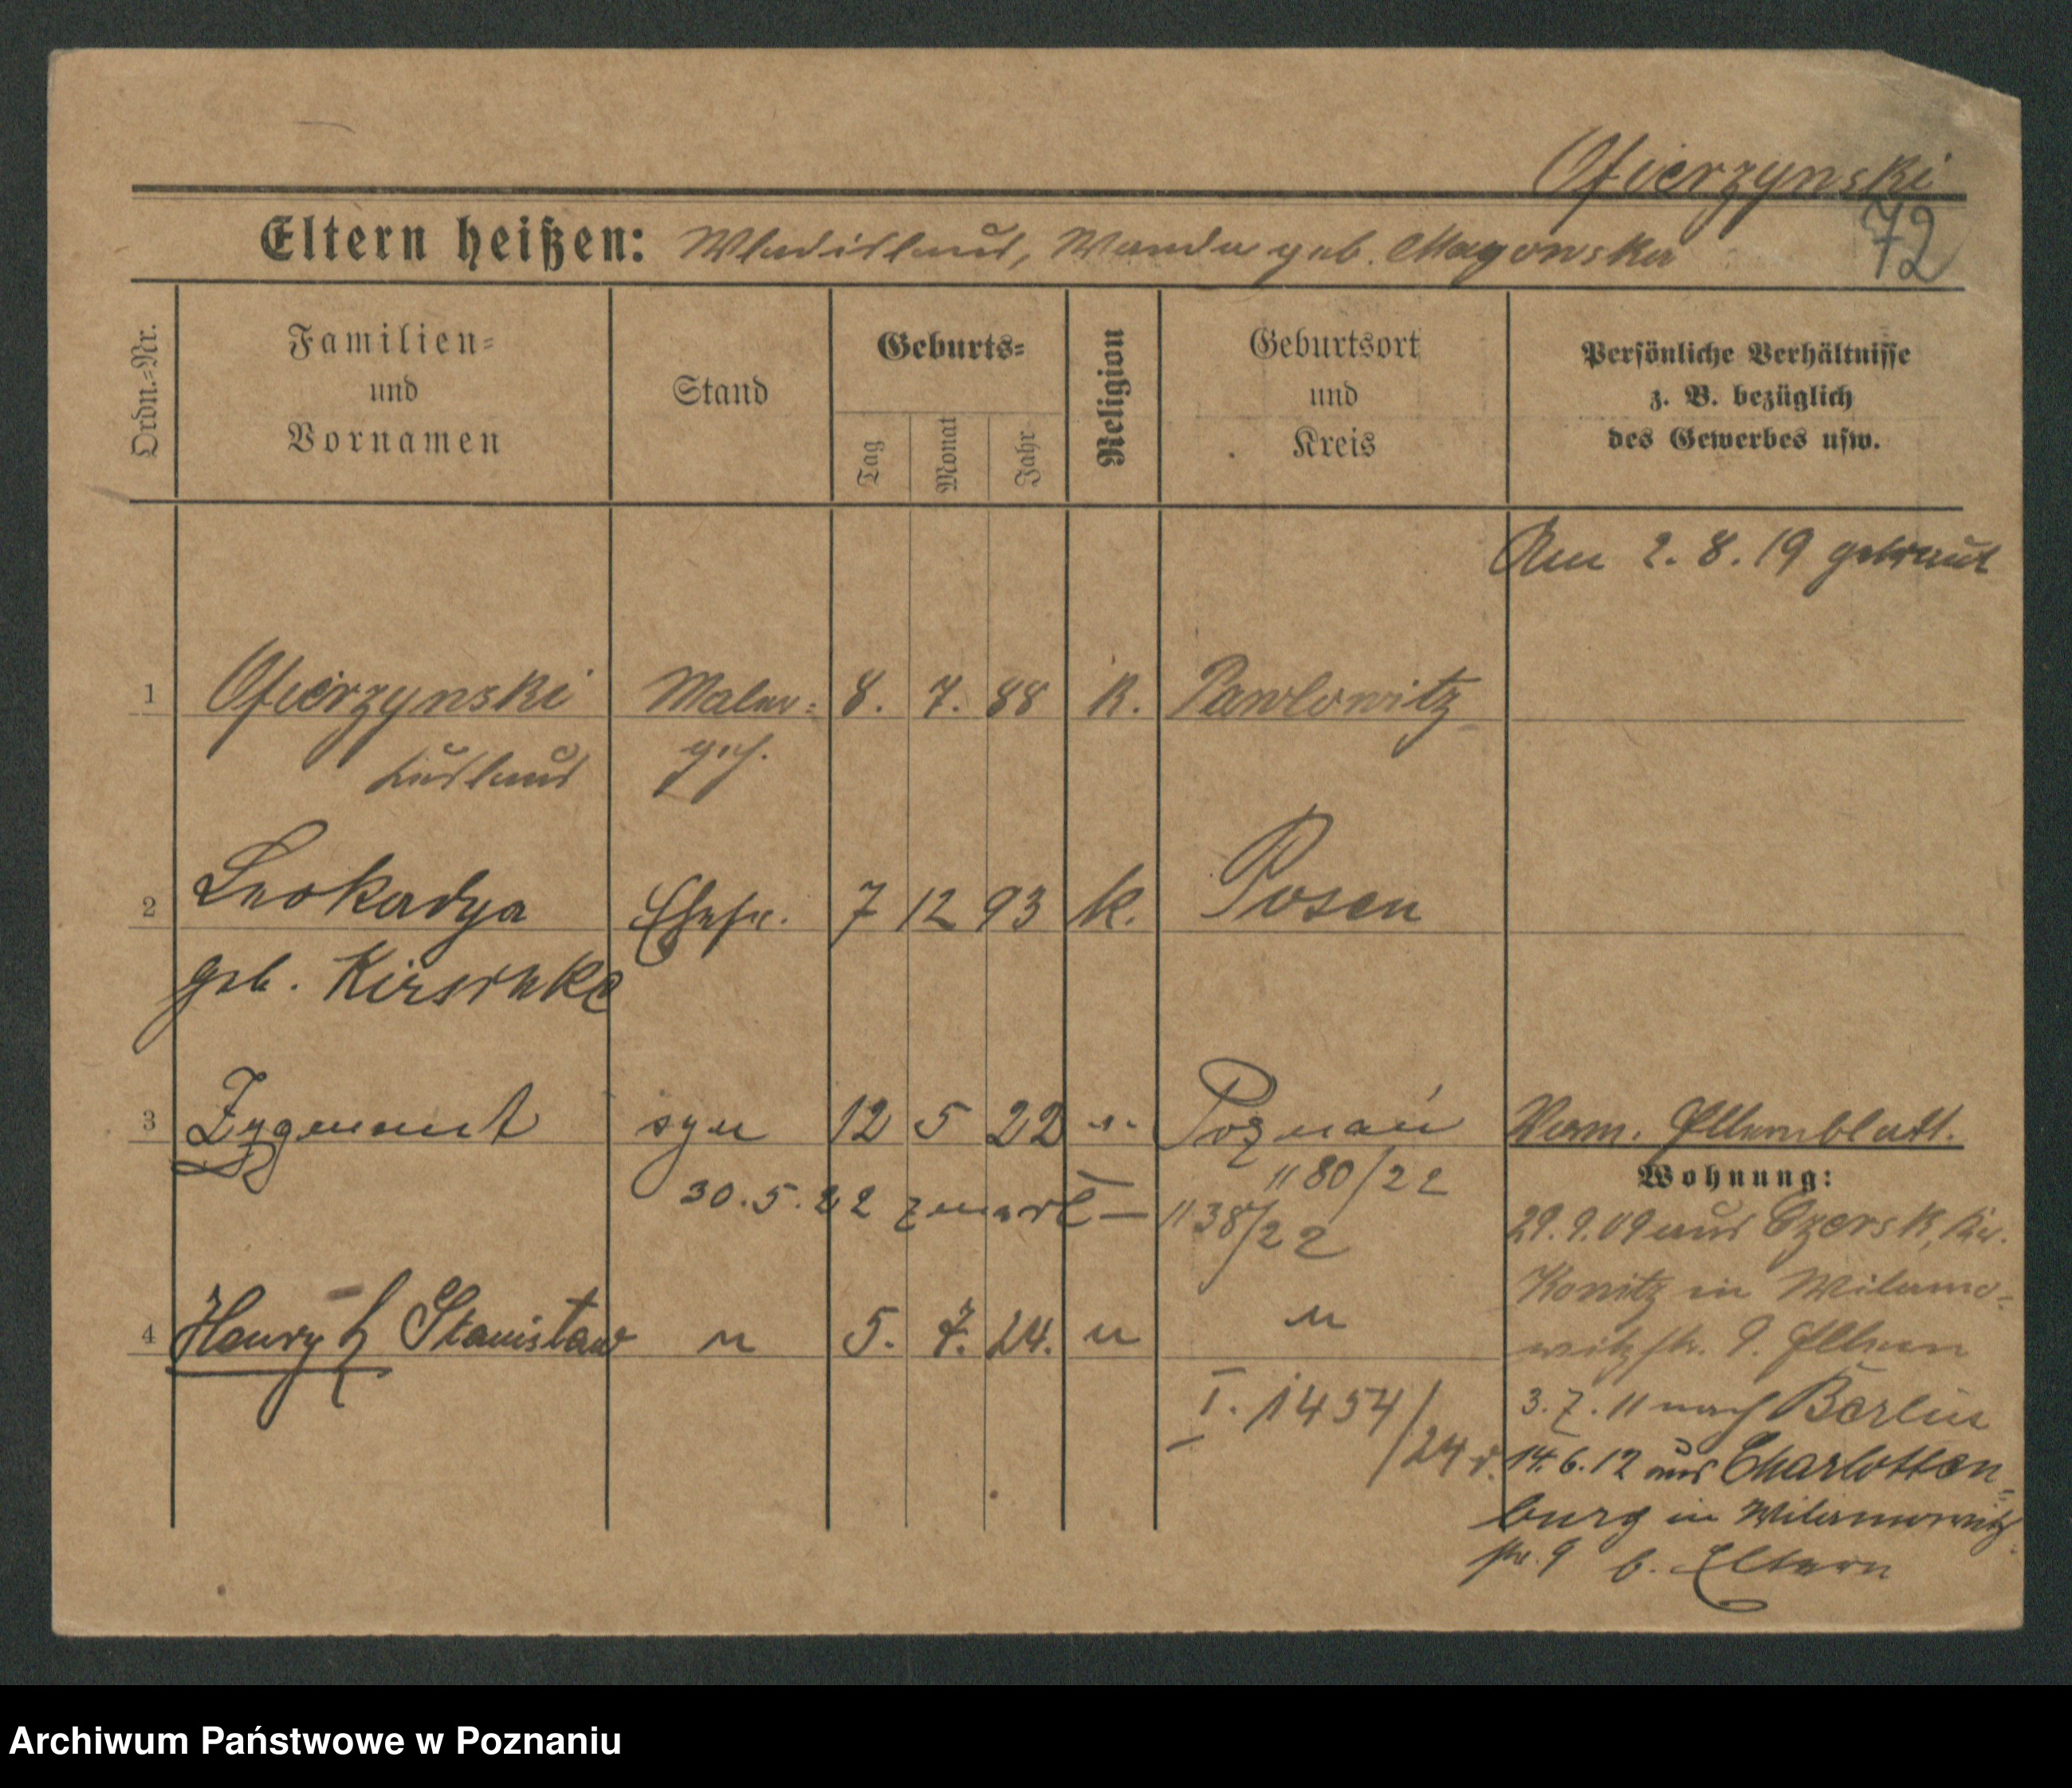 Ofierzynski
72
Eltern heißen: Wladislaus, Wanda geb. Magonska
Ordn.=Nr.
Familien=
und
Vornamen
Stand
Geburts=
Tag
Monat
Jahr
Religion
Geburtsort
und
Kreis
Persönliche Verhältnisse
z. B. bezüglich
des Gewerbes usw.
Am 2.8.19 getraut
1 Ofierzynski Maler= 8. 7. 88 K. Pawlowitz
geh.
2 Leokadya Ehefr. 7 12 93 k. Posen
geb. Kirschke
3 Zygmunt syn 12 5 22 " Poznań Elternblatt.
1180/22
30.5.22 zmarł — 1138/22
4 Henryk Stanisław " 5. 7. 24. " "
I. 1454/24
Wohnung:
29.9.09 aus Czersk, Kr.
Konitz in Wilamo=
witzstr. 9. Eltern
3.7.11 nach Berlin
14.6.12 aus Charlotten=
burg in Wilamowitz
str. 9 b. Eltern
Archiwum Państwowe w Poznaniu